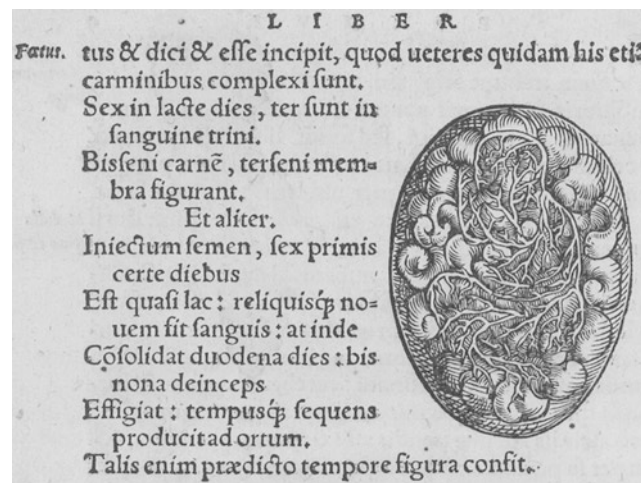 LIBER
Fœtus. tus & dici & eſſe incipit, quod ueteres quidam his etiā
carminibus complexi ſunt.
Sex in lacte dies, ter ſunt in
ſanguine trini.
Biſſeni carnē, terſeni mem=
bra figurant.
Et aliter.
Iniectum ſemen, ſex primis
certe diebus
Eſt quaſi lac: reliquisq́ꝫ no=
uem fit ſanguis: at inde
Cōſolidat duodena dies: bis
nona deinceps
Effigiat: tempusq́ꝫ ſequens
producit ad ortum.
Talis enim prædicto tempore figura confit.